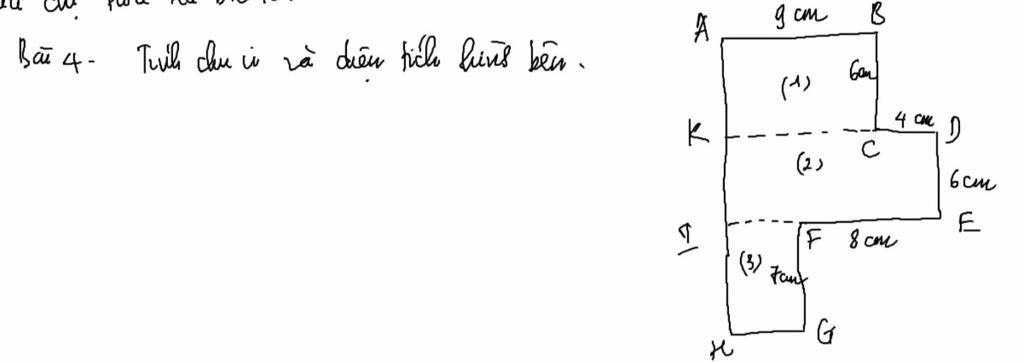 Bài 4- Tính chu vi và diện tích hình bên.
9 cm
A
B
(1)
6cm
4 cm
K
C
D
(2)
6cm
I
F
8 cm
E
(3)
7cm
H
G